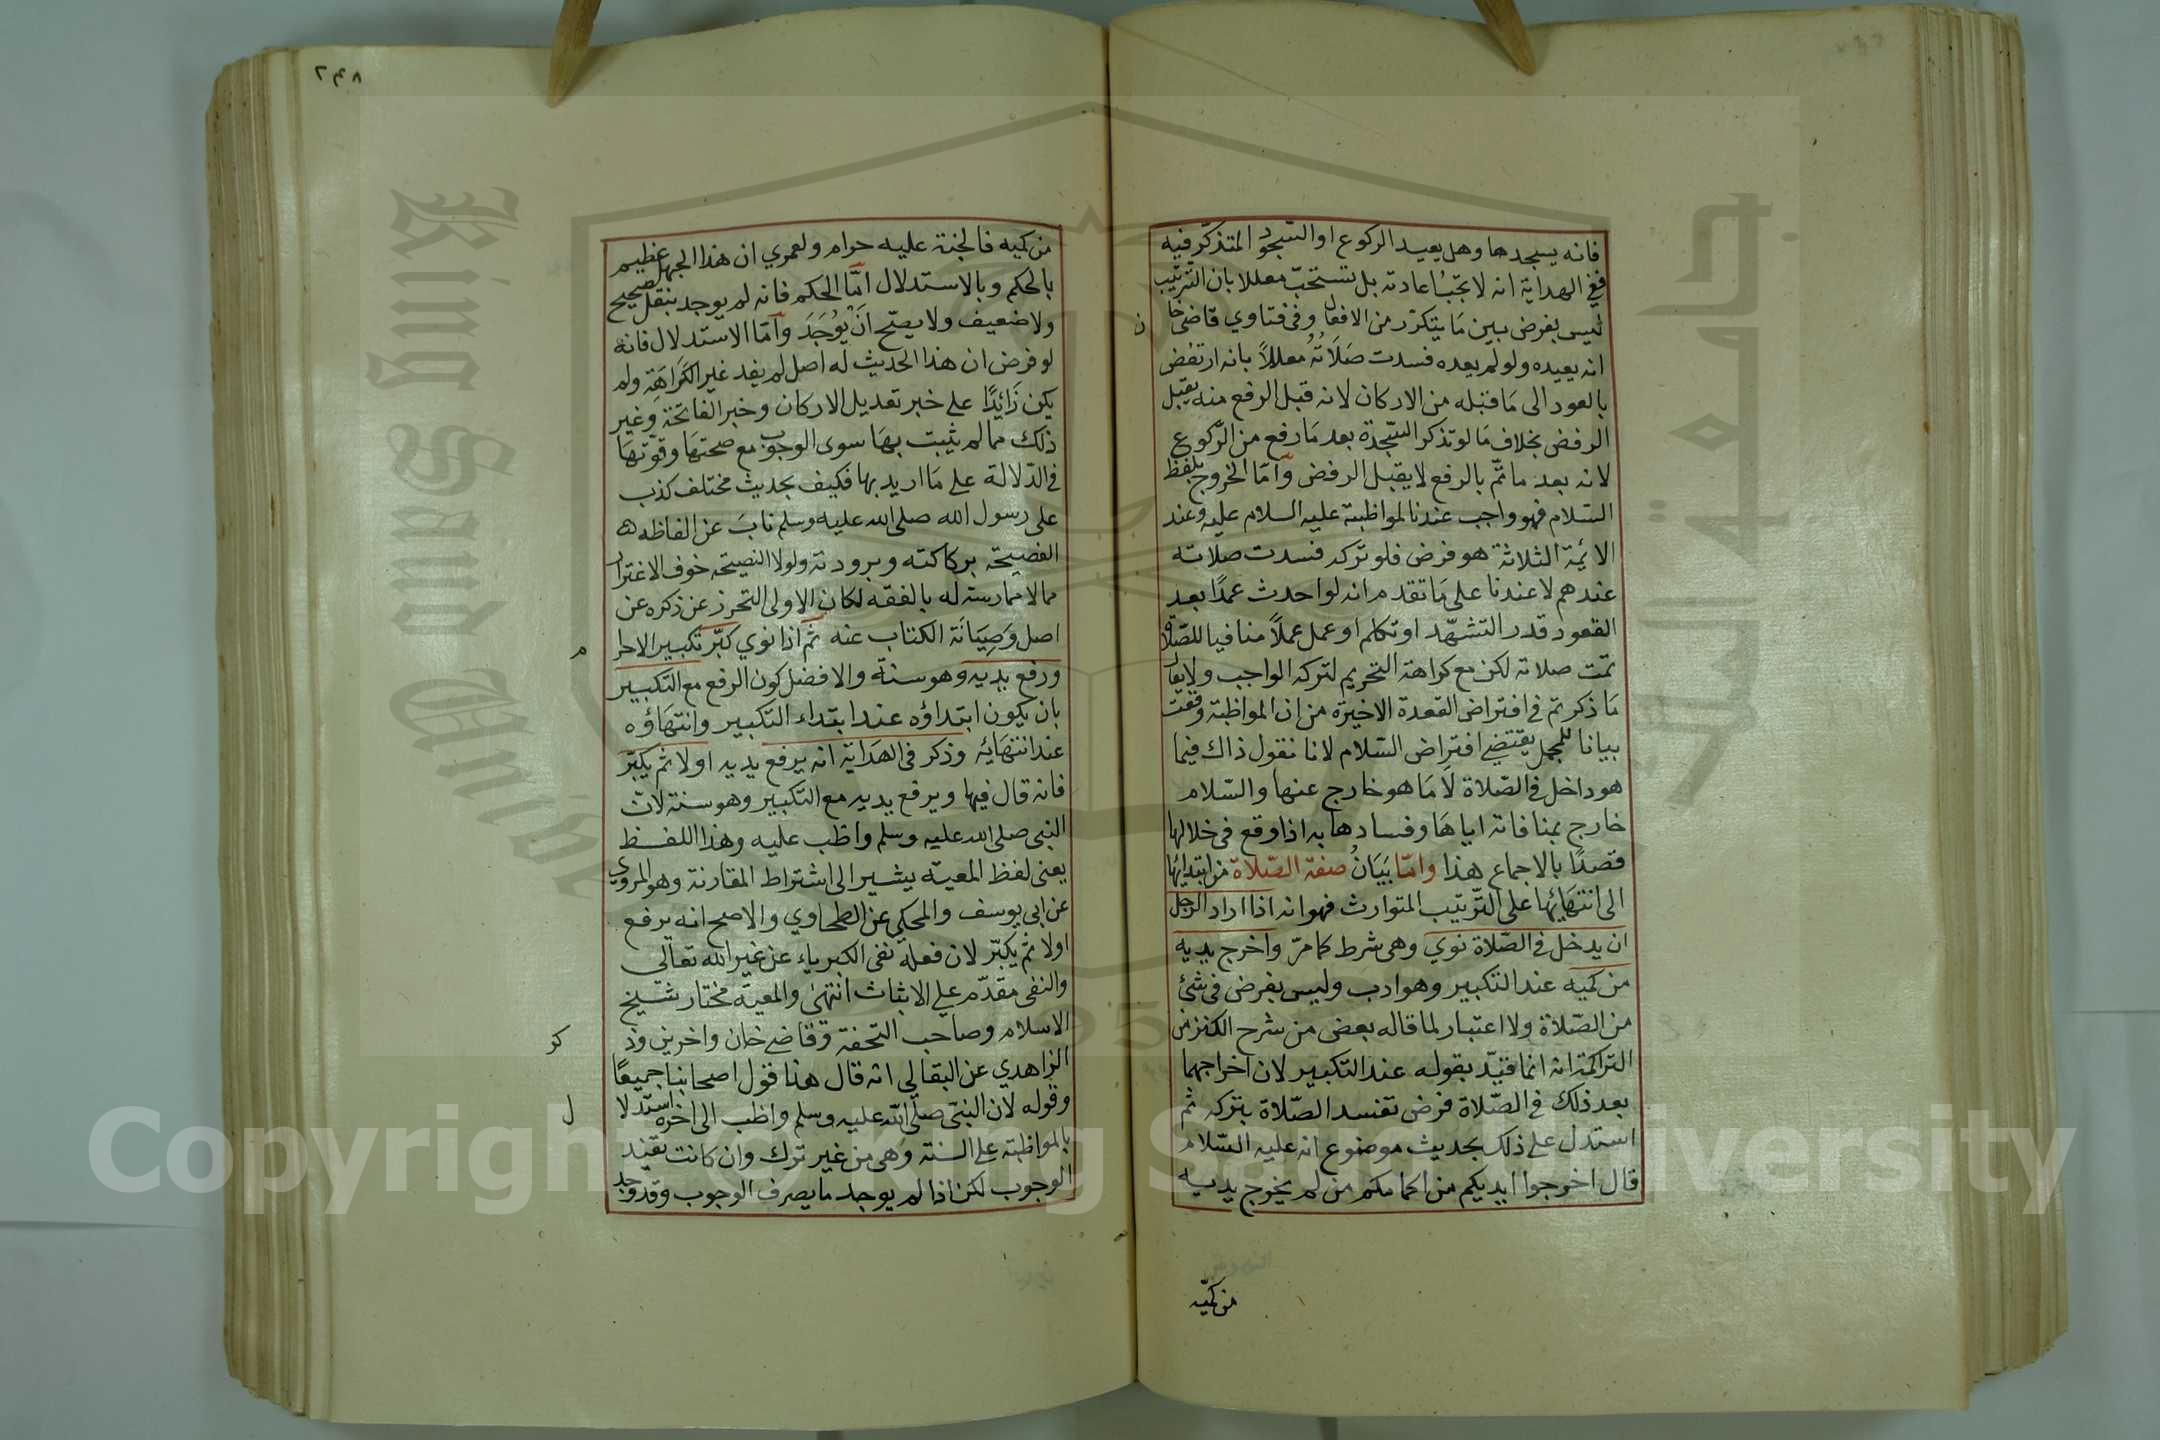 فانه يسجدها وهل يعيد الركوع او السجود المتذكر فيه
ففي الهداية انه لا يجب اعادته بل تستحب معللا بان الترتيب
ليس بفرض بين ما يتكرر من الافعال وفي فتاوي قاضي خا
ن
انه يعيده ولو لم يعده فسدت صلاته معللا بانه ارتفض
بالعود الى ما قبله من الاركان لانه قبل الرفع منه يقبل
الرفض بخلاف ما لو تذكر السجدة بعد ما رفع من الركوع
لانه بعد ما تم بالرفع لا يقبل الرفض واما الخروج بلفظ
السلام فهو واجب عندنا لمواظبته عليه السلام عليه وعند
الائمة الثلاثة هو فرض فلو تركه فسدت صلاته
عندهم لا عندنا على ما تقدم انه لو احدث عمدا بعد
القعود قدر التشهد او تكلم او عمل عملا منافيا للصلاة
تمت صلاته لكن مع كراهة التحريم لتركه الواجب ولا يقال
ما ذكرتم في افتراض القعدة الاخيرة من ان المواظبة وقعت
بيانا للمجمل يقتضي افتراض السلام لانا نقول ذاك فيما
هو داخل في الصلاة لا ما هو خارج عنها والسلام
خارج بمنافاته اياها وفسادها به اذا وقع في خلالها
قصدا بالاجماع هذا واما بيان صفة الصلاة من ابتدائها
الى انتهائها على الترتيب المتوارث فهو انه اذا اراد الرجل
ان يدخل في الصلاة نوي وهي شرط كما مر واخرج يديه
من كميه عند التكبير وهو ادب وليس بفرض في شئ
من الصلاة ولا اعتبار لما قاله بعض من شرح الكنز من
التراكمة انه انما قيد بقوله عند التكبير لان اخراجهما
بعد ذلك في الصلاة فرض تفسد الصلاة بتركه ثم
استدل على ذلك بحديث موضوع انه عليه السلام
قال اخرجوا ايديكم من اكمامكم من لم يخرج يديه
من كميه
٢٣٨
من كميه فالجنة عليه حرام ولعمري ان هذا الجهل عظيم
بالحكم وبالاستدلال اما الحكم فانه لم يوجد بنقل صحيح
ولا ضعيف ولا يصح ان يوجد واما الاستدلال فانه
لو فرض ان هذا الحديث له اصل لم يفد غير الكراهة ولم
يكن زائدا على خبر تعديل الاركان وخبر الفاتحة وغير
ذلك مما لم يثبت بها سوى الوجوب مع صحتها وقوتها
في الدلالة على ما اريد بها فكيف بحديث مختلف كذب
على رسول الله صلى الله عليه وسلم ناب عن الفاظه
الفصيحة بركاكته وبرودته ولولا النصيحة خوف الاغترار
مما لا ممارسة له بالفقه لكان الاولى التحرز عن ذكره عن
اصل وصيانة الكتاب عنه ثم اذا نوي كبر تكبير الاحرا
م
ورفع يديه وهو سنة والافضل كون الرفع مع التكبير
بان يكون ابتداؤه عند ابتداء التكبير وانتهاؤه
عند انتهائه وذكر في الهداية انه يرفع يديه اولا ثم يكبر
فانه قال فيها ويرفع يديه مع التكبير وهو سنة لان
النبي صلى الله عليه وسلم واظب عليه وهذا اللفظ
يعني لفظ المعية يشير الى اشتراط المقارنة وهو المروي
عن ابي يوسف والمحكي عن الطحاوي والاصح انه يرفع
اولا ثم يكبر لان فعله نفي الكبرياء عن غير الله تعالى
والنفي مقدم على الاثبات انتهى والمعية مختار شيخ
الاسلام وصاحب التحفة وقاضي خان واخرين وذ
كر
الزاهدي عن البقالي انه قال هذا قول اصحابنا جميعا
وقوله لان النبي صلى الله عليه وسلم واظب الى اخره استدلا
ل
بالمواظبة على السنة وهي من غير ترك وان كانت تفيد
الوجوب لكن اذا لم يوجد ما يصرف الوجوب وقد وجد
King Saud University
Copyright © King Saud University